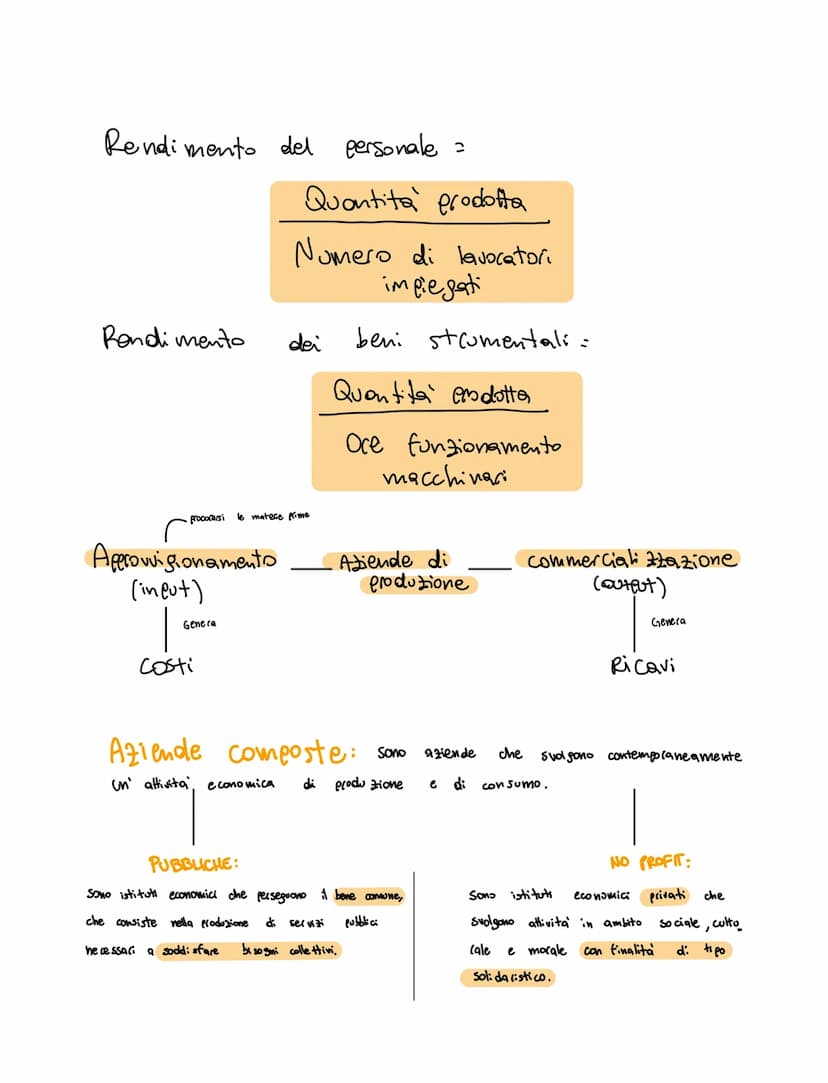 Rendimento del personale =
Quantità prodotta
Numero di lavoratori
impiegati
Rendimento dei beni strumentali =
Quantità prodotta
Ore funzionamento
macchinari
procurarsi le materie prime
Approvvigionamento
(input)
Genera
Costi
Aziende di
produzione
commercializzazione
(output)
Genera
Ricavi
Aziende composte: sono aziende che svolgono contemporaneamente
un' attività economica di produzione e di consumo.
PUBBLICHE:
Sono istituti economici che perseguono il bene comune,
che consiste nella produzione di servizi pubblici
necessari a soddisfare bisogni collettivi.
NO PROFIT:
Sono istituti economici privati che
svolgono attività in ambito sociale, cultu
rale e morale con finalità di tipo
solidaristico.